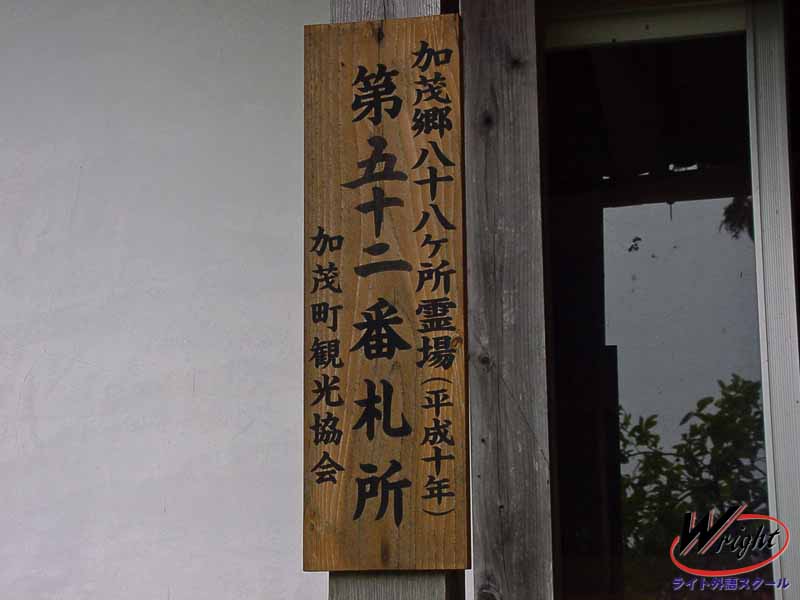 加茂郷八十八ヶ所霊場(平成十年)
第五十二番札所
加茂町観光協会
Wright
ライト外語スクール